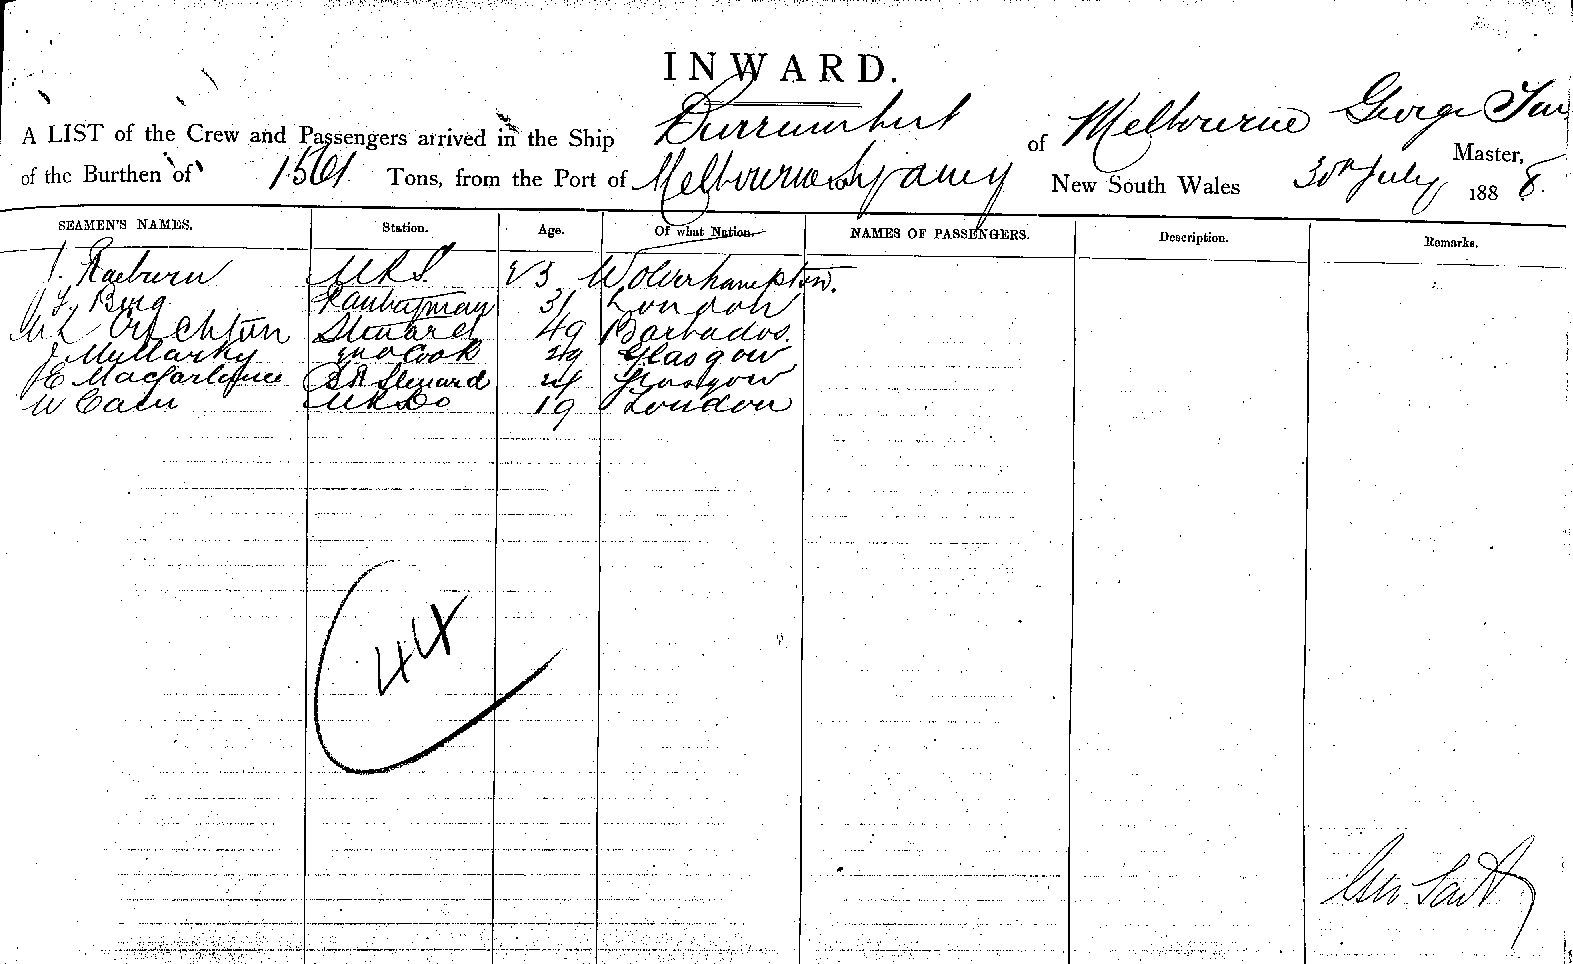 INWARD.
A LIST of the Crew and Passengers arrived in the Ship Burrumbeet of Melbourne George
Master,
of the Burthen of 1561 Tons, from the Port of Melbourne Sydney New South Wales 30th July 1888.
SEAMEN'S NAMES. Station. Age. Of what Nation. NAMES OF PASSENGERS. Description. Remarks.
J. Raeburn 23 Wolverhampton.
Pantryman 31 London
Crichton Steward 49 Barbados.
J Mullarky 2nd Cook 29 Glasgow
E Macfarlane Steward 24 Glasgow
W Cain 19 London
44
Geo